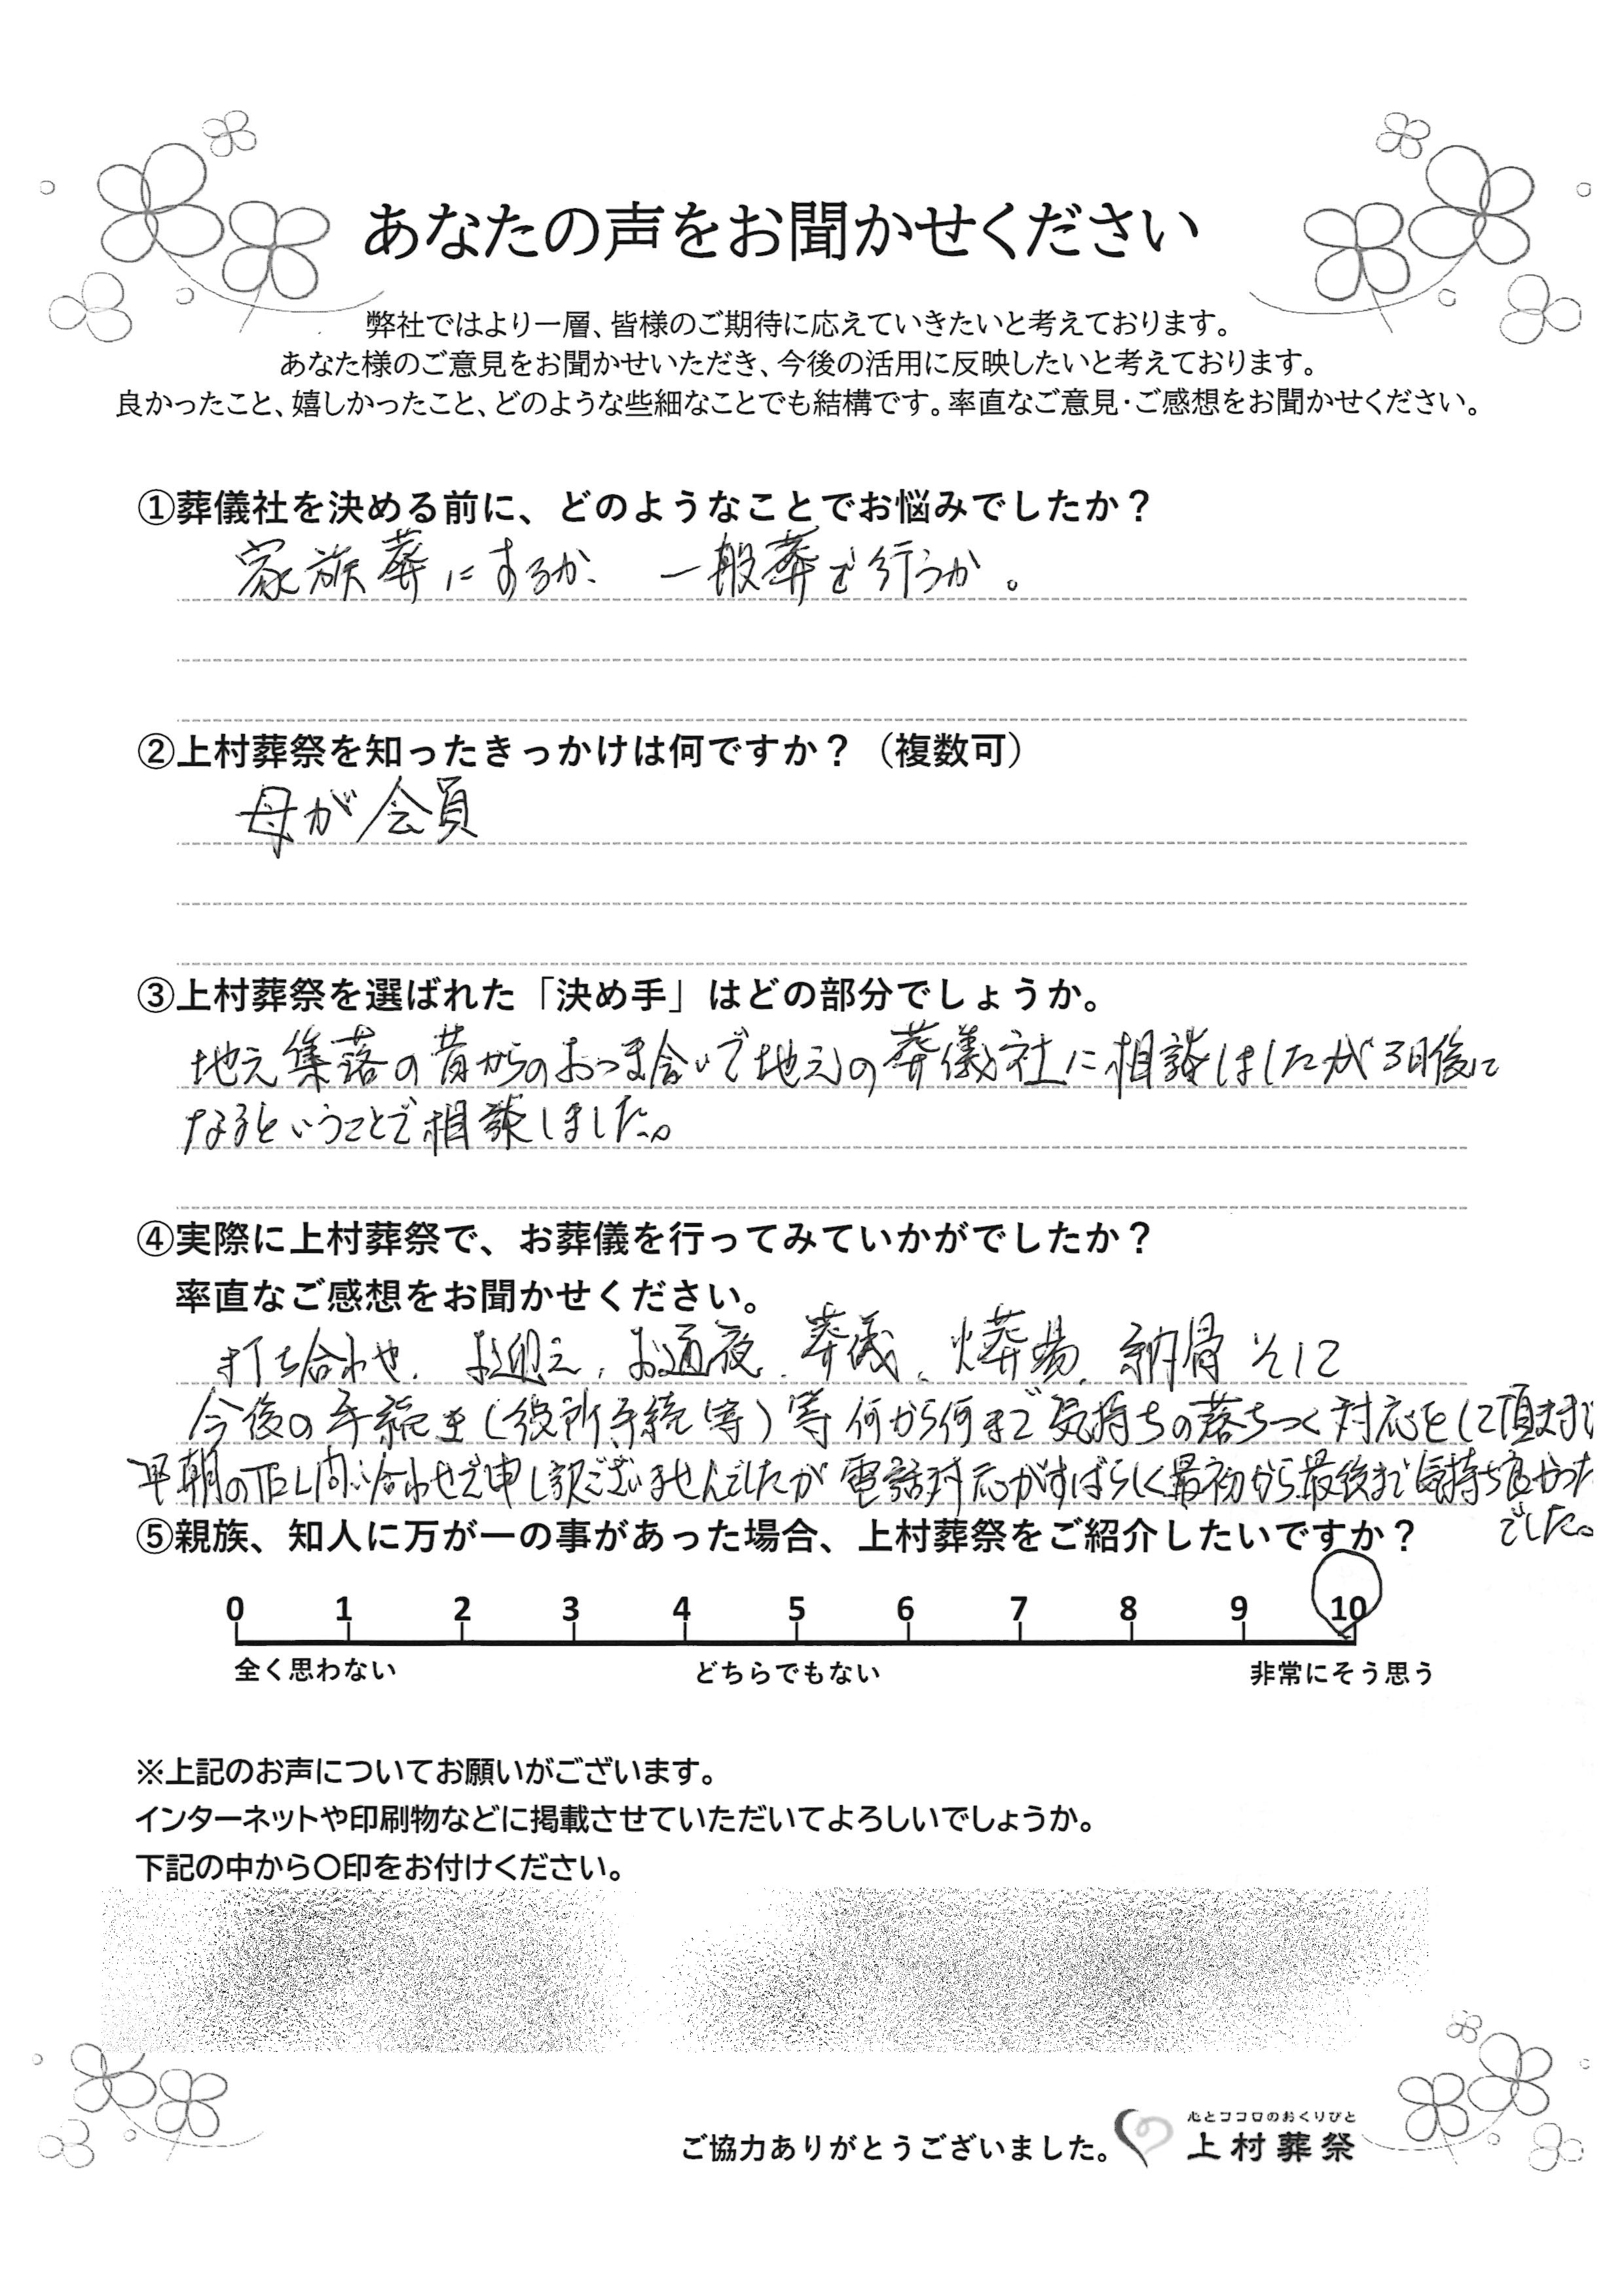 あなたの声をお聞かせください
弊社ではより一層、皆様のご期待に応えていきたいと考えております。
あなた様のご意見をお聞かせいただき、今後の活用に反映したいと考えております。
良かったこと、嬉しかったこと、どのような些細なことでも結構です。率直なご意見・ご感想をお聞かせください。
①葬儀社を決める前に、どのようなことでお悩みでしたか？
家族葬にするか、一般葬で行うか。
②上村葬祭を知ったきっかけは何ですか？（複数可）
母が会員
③上村葬祭を選ばれた「決め手」はどの部分でしょうか。
地元集落の昔からのおつき合いで地元の葬儀社に相談はしたが3日後に
なるということで相談しました。
④実際に上村葬祭で、お葬儀を行ってみていかがでしたか？
率直なご感想をお聞かせください。
打ち合わせ、お迎え、お通夜、葬儀、火葬場、納骨そして
今後の手続き（役所手続等）等何から何まで気持ちの落ちつく対応をして頂きまし
早朝のTEL問い合わせで申し訳ございませんでしたが電話対応がすばらしく最初から最後まで気持ち良かった
でした。
⑤親族、知人に万が一の事があった場合、上村葬祭をご紹介したいですか？
0 1 2 3 4 5 6 7 8 9 10
全く思わない どちらでもない 非常にそう思う
※上記のお声についてお願いがございます。
インターネットや印刷物などに掲載させていただいてよろしいでしょうか。
下記の中から〇印をお付けください。
心とココロのおくりびと
ご協力ありがとうございました。 上村葬祭